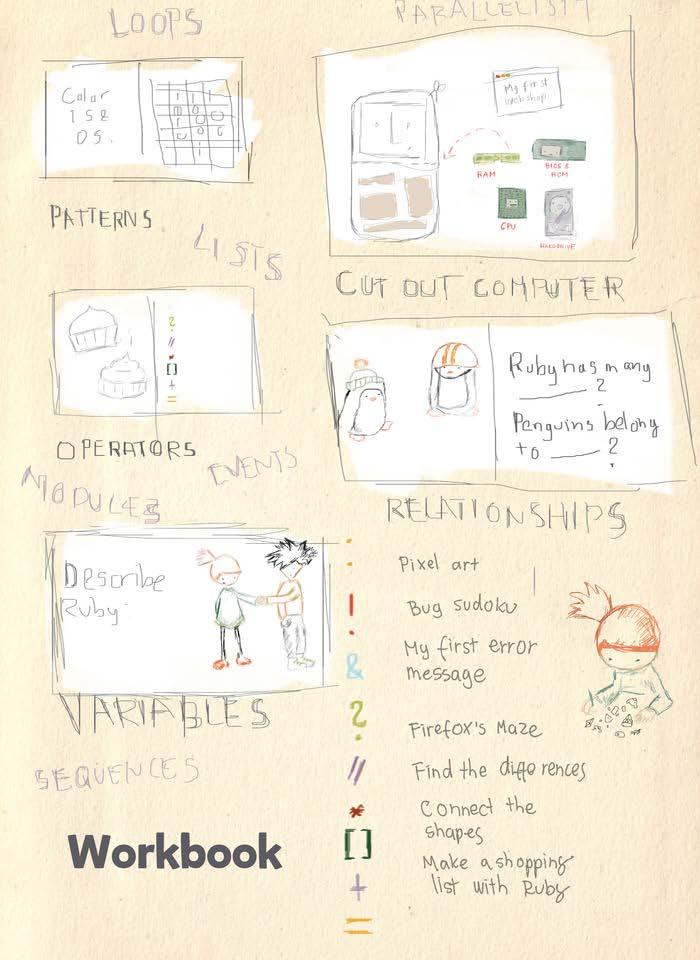 LOOPS
PARALLELISM
Color
1 S &
0 S.
My first
webshop
RAM
BIOS &
ROM
CPU
HARDDRIVE
PATTERNS
LISTS
CUT OUT COMPUTER
?
//
*
[]
+
=
Ruby has many
______ ?
Penguins belong
to ______ ?
OPERATORS
EVENTS
MODULES
RELATIONSHIPS
Describe
Ruby.
VARIABLES
SEQUENCES
Workbook
:
!
&
?
//
*
[]
+
=
Pixel art
Bug sudoku
My first error
message
Firefox's Maze
Find the differences
Connect the
shapes
Make a shopping
list with Ruby